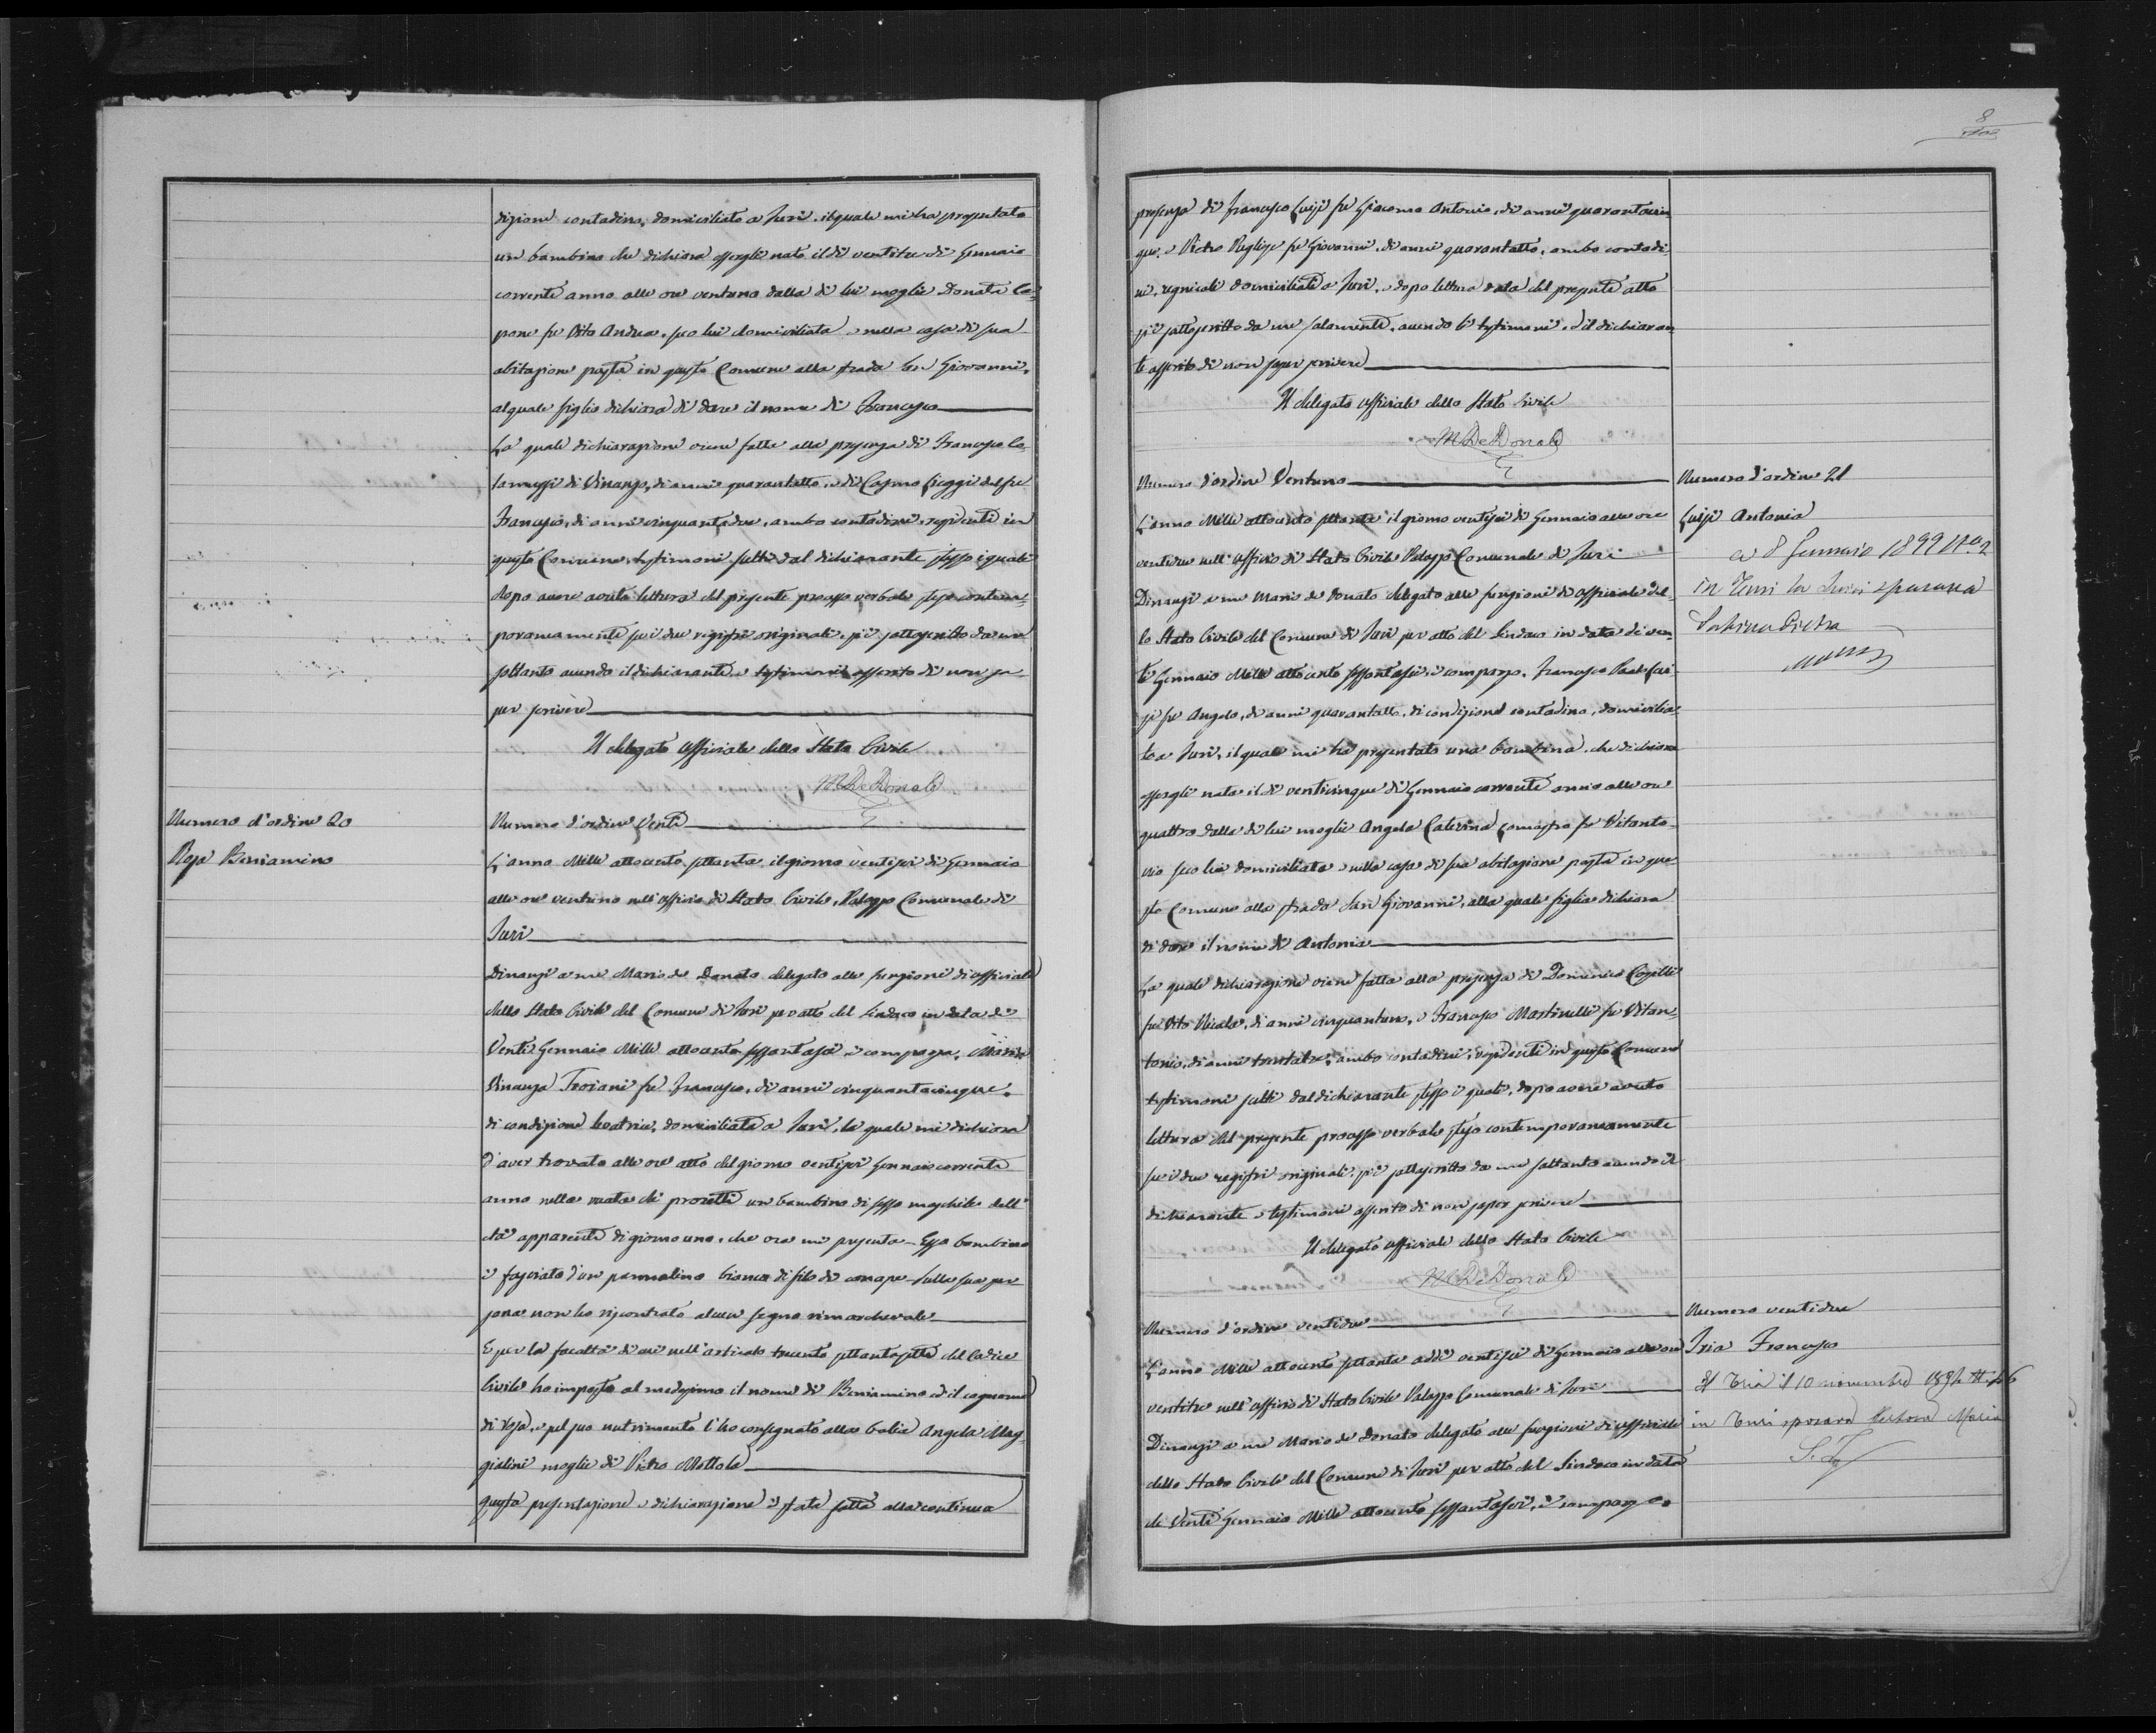 dizione contadino, domiciliato a Turi, il quale mi ha presentato
un bambino che dichiara essergli nato il dì ventitre di Gennaio
corrente anno alle ore ventuna dalla di lui moglie Donata Ca-
pone fu Vito Andrea, seco lui domiciliata, nella casa di sua
abitazione posta in questo Comune alla strada San Giovanni,
al quale figlio dichiara di dare il nome di Francesco
La quale dichiarazione viene fatta alla presenza di Francesco
di Vinanzo, di anni quarantotto, e di Cosmo del fu
Francesco, di anni cinquantadue, ambo contadini, residenti in
questo Comune, testimoni scelti dal dichiarante stesso i quali
dopo avere avuto lettura del presente processo verbale steso contem-
poraneamente sui due registri originali, si è sottoscritto da me
soltanto avendo il dichiarante e testimoni asserito di non sa-
per scrivere
Il delegato Officiale dello Stato Civile
M De Donato
Numero d'ordine 20
Rosa Beniamino
Numero d'ordine Venti
L'anno Mille ottocento settanta il giorno ventisei di Gennaio
alle ore ventuno nell'Officio di Stato Civile, Palazzo Comunale di
Turi
Dinanzi a me Mario de Donato delegato alle funzioni di officiale
dello Stato Civile del Comune di Turi per atto del Sindaco in data di
Venti Gennaio Mille ottocento sessantasei è comparsa, Maria
Vinanza Troiani fu Francesco, di anni cinquantacinque,
di condizione levatrice, domiciliata a Turi, la quale mi dichiara
d'aver trovato alle ore otto del giorno ventisei Gennaio corrente
anno nella ruota dei proietti un bambino di sesso maschile dell'
età apparente di giorno uno, che ora mi presenta. Esso bambino
è fasciato d'un pannolino bianco di filo di canape. Sulla sua per
sona non ho riscontrato alcun segno rimarchevole
E per la facoltà di cui nell'articolo trecento settantasette del Codice
Civile ho imposto al medesimo il nome di Beniamino ed il cognome
di Rosa, e pel suo nutrimento l'ho consegnato alla balia Angela Mag
gialini moglie di Pietro Mottola
Questa presentazione e dichiarazione è stata fatta alla continua
8
presenza di Francesco Luisi fu Giacomo Antonio, di anni quarantacin
que, e Pietro fu Giovanni, di anni quarantotto, ambo contadi
ni, regnicoli domiciliati a Turi, e dopo lettura data del presente atto
si è sottoscritto da me solamente, avendo li testimoni, ed il dichiaran
te asserito di non saper scrivere
Il delegato officiale dello Stato Civile
M De Donato
Numero d'ordine Ventuno
L'anno Mille ottocento settanta il giorno ventisei di Gennaio alle ore
ventidue nell'Officio di Stato Civile Palazzo Comunale di Turi
Dinanzi a me Mario de Donato delegato alle funzioni di Officiale del-
lo Stato Civile del Comune di Turi per atto del Sindaco in data di ven
ti Gennaio Mille ottocento sessantasei, è comparso, Francesco Paolo Lui
si fu Angelo, di anni quarantotto, di condizione contadino, domicilia
to a Turi, il quale mi ha presentato una bambina, che dichiara
essergli nata il dì venticinque di Gennaio corrente anno alle ore
quattro dalla di lui moglie Angela Caterina fu Vitanto-
nio seco lui domiciliata, nella casa di sua abitazione posta in que
sto Comune alla strada San Giovanni, alla quale figlia dichiara
di dare il nome di Antonia
La quale dichiarazione viene fatta alla presenza di Domenico
fu Vito Nicola, di anni cinquantuno, e Francesco Martinelli fu Vitan
tonio, di anni trentatre, ambo contadini, residenti in questo Comune
testimoni scelti dal dichiarante stesso i quali, dopo avere avuto
lettura del presente processo verbale steso contemporaneamente
su i due registri originali, si è sottoscritto da me soltanto avendo il
dichiarante e testimoni asserito di non saper scrivere
Il delegato officiale dello Stato Civile
M De Donato
Numero d'ordine ventidue
L'anno Mille ottocento settanta addì ventisei di Gennaio alle ore
ventitre nell'Officio di Stato Civile Palazzo Comunale di Turi
Dinanzi a me Mario de Donato delegato alle funzioni di Officiale
dello Stato Civile del Comune di Turi per atto del Sindaco in data
de Venti Gennaio Mille ottocento sessantasei, è comparso
Numero d'ordine 21
Luisi Antonia
8 Gennaio 1899 N° 2
in Turi la Luisi sposava
Pietro
Numero ventidue
Iria Francesco
Il Iria il 10 novembre
in Turi sposava Maria